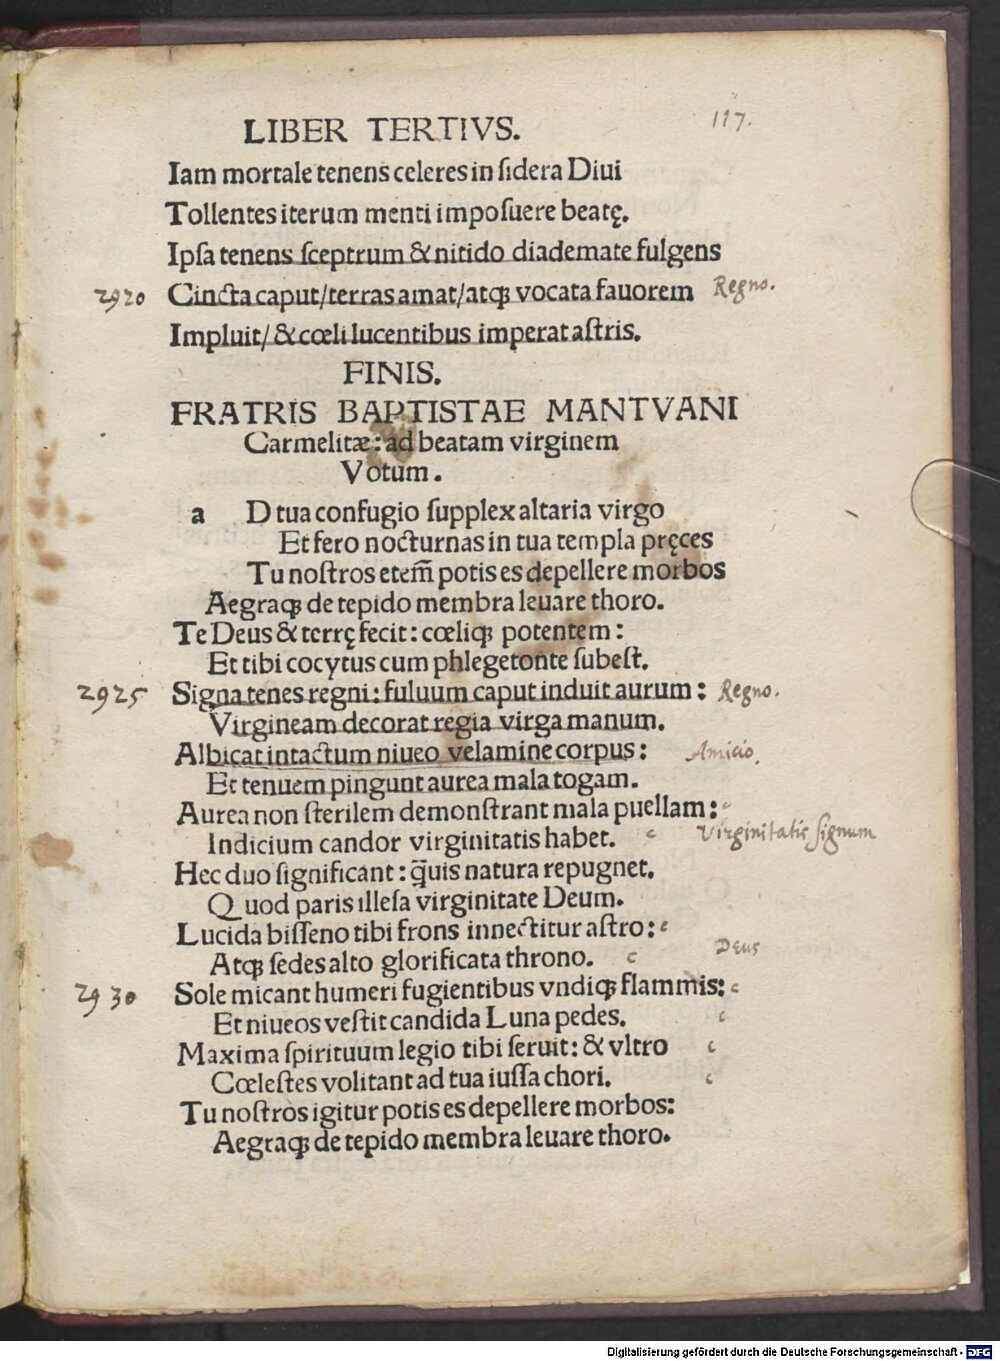 LIBER TERTIVS. 117.
Iam mortale tenens celeres in sidera Diui
Tollentes iterum menti imposuere beatę.
Ipsa tenens sceptrum & nitido diademate fulgens
2920 Cincta caput/terras amat/atqꝫ vocata fauorem Regno.
Impluit/ & cœli lucentibus imperat astris.
FINIS.
FRATRIS BAPTISTAE MANTVANI
Carmelitæ: ad beatam virginem
Votum.
a D tua confugio supplex altaria virgo
Et fero nocturnas in tua templa pręces
Tu nostros etem̄ potis es depellere morbos
Aegraqꝫ de tepido membra leuare thoro.
Te Deus & terrę fecit: cœliqꝫ potentem:
Et tibi cocytus cum phlegetonte subest.
2925 Signa tenes regni: fuluum caput induit aurum: Regno.
Virgineam decorat regia virga manum.
Albicat intactum niueo velamine corpus: Amicio.
Et tenuem pingunt aurea mala togam.
Aurea non sterilem demonstrant mala puellam:
Indicium candor virginitatis habet. Virginitatis signum
Hec duo significant: q̄uis natura repugnet.
Quod paris illesa virginitate Deum.
Lucida bisseno tibi frons innectitur astro:
Atqꝫ sedes alto glorificata throno. Deus
2930 Sole micant humeri fugientibus vndiqꝫ flammis:
Et niueos vestit candida Luna pedes.
Maxima spirituum legio tibi seruit: & vltro
Cœlestes volitant ad tua iussa chori.
Tu nostros igitur potis es depellere morbos:
Aegraqꝫ de tepido membra leuare thoro.
Digitalisierung gefördert durch die Deutsche Forschungsgemeinschaft - DFG